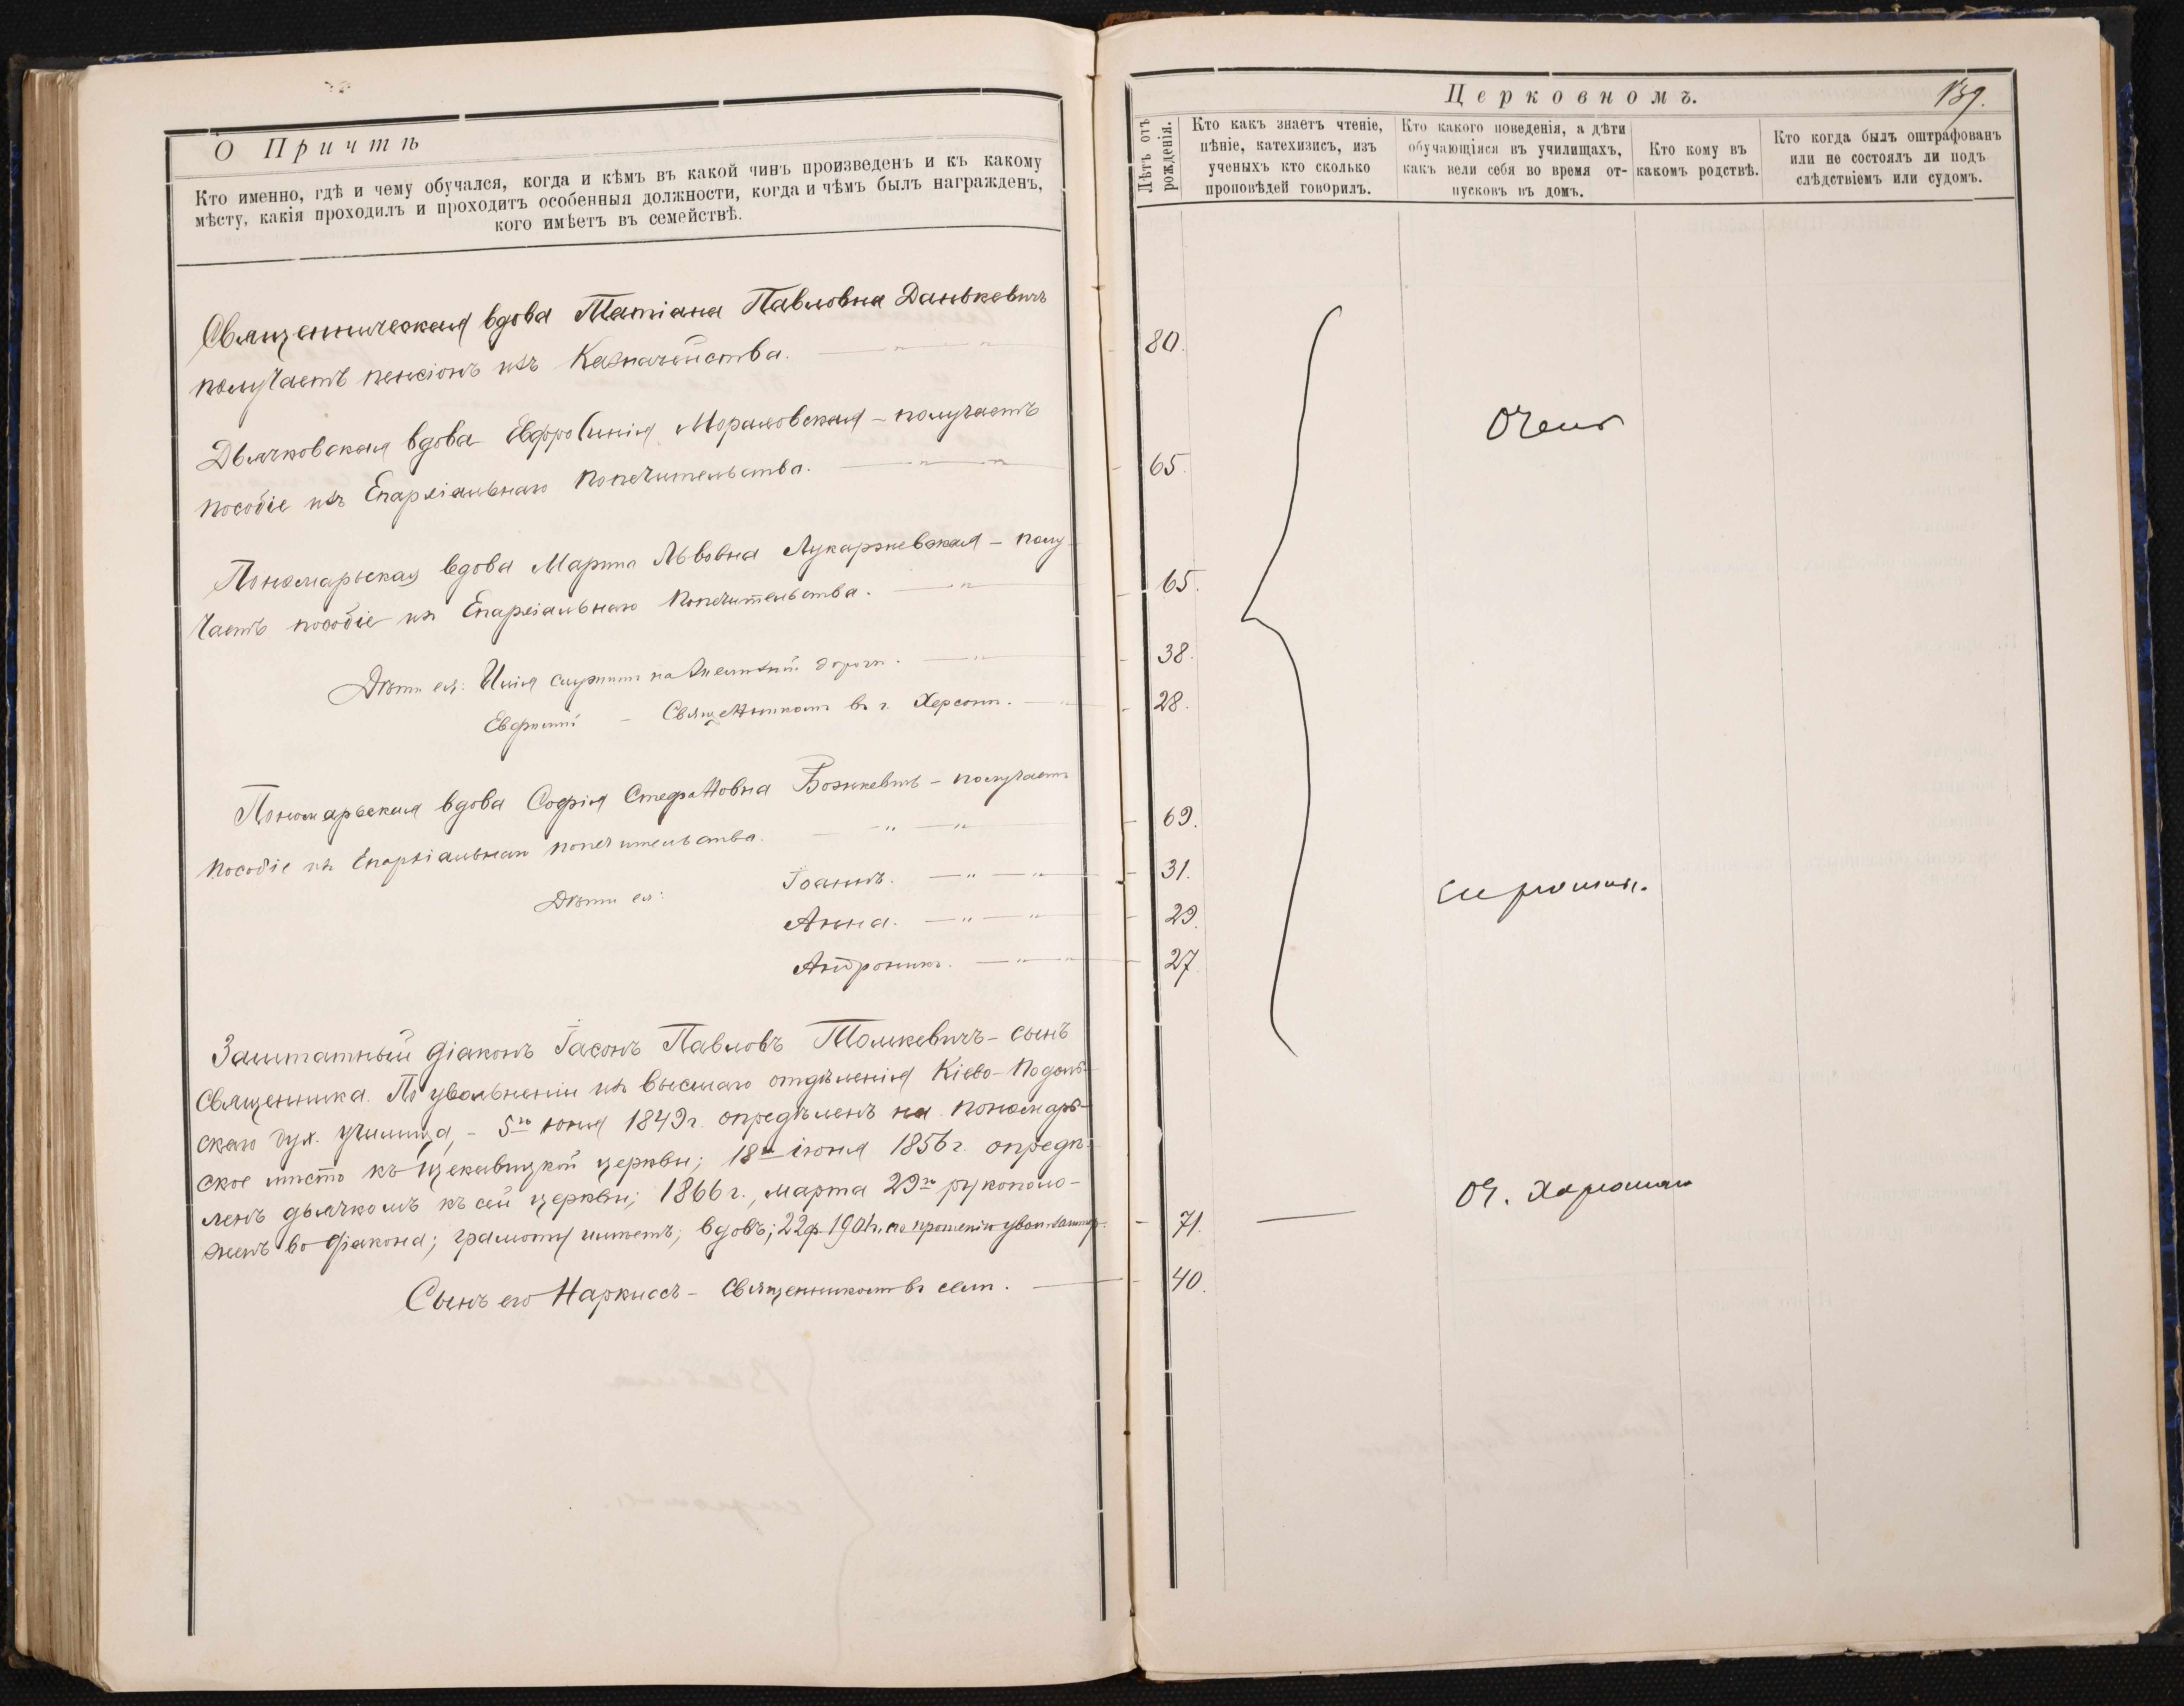 О Причтѣ
Кто именно, гдѣ и чему обучался, когда и кѣмъ въ какой чинъ произведенъ и къ какому
мѣсту, какія проходилъ и проходитъ особенныя должности, когда и чѣмъ былъ награжденъ,
кого имѣетъ въ семействѣ.
Священническая вдова Татіана Павловна Данькевичъ
получаетъ пенсіонъ изъ Казначейства.
Дьячковская вдова Евфросинія - получаетъ
пособіе изъ Епархіальнаго Попечительства.
Пономарьская вдова Марина Львовна Лукаржевская - полу-
чаетъ пособіе изъ Епархіальнаго Попечительства.
Дѣти ея: Илія служитъ на дорогѣ.
Евфимій - Священникомъ въ г. Херсонѣ.
Пономарьская вдова Софія Стефановна Божкевичъ - получаетъ
пособіе изъ Епархіальнаго попечительства.
Дѣти ея: Іоаннъ.
Анна.
Андроникъ.
Заштатный діаконъ Іасонъ Павловъ Толкевичъ - сынъ
Священника. По увольненіи изъ высшаго отдѣленія Кіево-Подоль-
скаго дух. училища, - 5го юня 1849 г. опредѣленъ на пономарь-
ское мѣсто къ Щекавицкой церкви; 18го іюня 1856 г. опредѣ-
ленъ дьячкомъ къ сей церкви; 1866 г., марта 29го рукополо-
женъ во діакона; грамоту имѣетъ; вдовъ; 22 ф. 1904 г. по прошенію увол. за штат.
Сынъ его Наркиссъ - священникомъ въ селѣ.
Церковномъ.
139.
Лѣтъ отъ
рожденія.
Кто какъ знаетъ чтеніе,
пѣніе, катехизисъ, изъ
ученыхъ кто сколько
проповѣдей говорилъ.
Кто какого поведенія, а дѣти
обучающіяся въ училищахъ,
какъ вели себя во время от-
пусковъ въ домъ.
Кто кому въ
какомъ родствѣ.
Кто когда былъ оштрафованъ
или не состоялъ ли подъ
слѣдствіемъ или судомъ.
80.
Очень
65.
65.
38.
28.
69.
31.
29.
27.
71.
Оч. хорошаго
40.